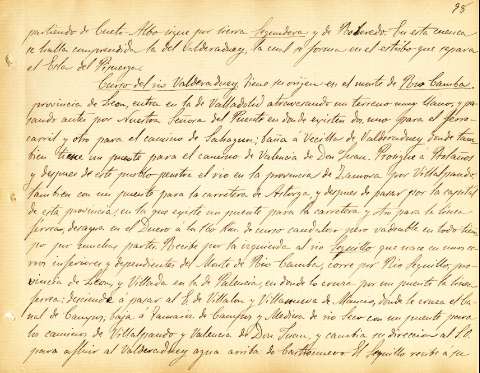 98
partiendo de Cueto-Albo sigue por sierra Segundera y de Reboredo. En esta cuenca
se halla comprendida la del Valderaduey, la cual se forma en el estribo que separa
el Esla del Pisuerga.
Curso del rio Valderaduey. Tiene su origen en el monte de Rio Camba,
provincia de Leon, entra en la de Valladolid atravesando un terreno muy llano, y pa-
sando antes por Nuestra Señora del Puente en donde existen dos, uno para el ferro-
carril y otro para el camino de Sahagun; baña á Vecilla de Valderaduey donde tam-
bien tiene un puente para el camino de Valencia de Don Juan. Prosigue a Bolaños
y despues de este pueblo penetra el rio en la provincia de Zamora por Villalpando,
tambien con un puente para la carretera de Astorga, y despues de pasar por la capital
de esta provincia, en la que existe un puente para la carretera y otro para la linea
ferrea, desagua en el Duero a los Km de curso caudaloso pero vadeable en todo tiem-
po por muchas partes. Recibe por la izquierda al rio Sequillo que nace en unos cer-
ros inferiores y dependientes del Monte de Rio Camba, corre por Rio Sequillo, pro-
vincia de Leon, y Villada en la de Palencia, en donde lo cruza por un puente la linea
ferrea; desciende á pasar al E. de Villalon y Villanueva de Mancos, donde le cruza el ca-
nal de Campos, baja á Tamariz de Campos y Medina de rio Seco con un puente, para
los caminos de Villalpando y Valencia de Don Juan, y cambia su direccion al S.O.
para afluir al Valderaduey agua arriba de Castronuevo. El Sequillo recibe a su